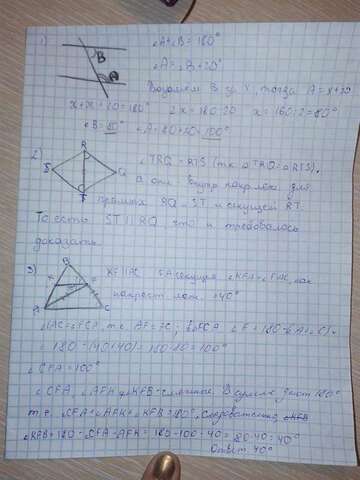 1) B A ∠A+∠B=180°
∠A=∠B+20°
Возьмем B за X, тогда A=x+20
x+x+20=180° 2x=180-20 x=160:2=80°
∠B=80° ∠A=80+20=100°
2) R S Q T ∠TRQ=RTS (т.к △TRQ=△RTS),
а они внутр накр леж для
прямых RQ и ST и секущей RT.
То есть ST||RQ, что и требовалось
доказать
3) B K F A C KF||AC FA секущая ∠KFA=∠FAC, как
накрест леж. =40°
∠FAC=∠FCA, т.к. AF=FC; △FCA ∠F=180-(∠A+∠C)=
=180-(40+40)=180-80=100°
∠CFA=100°
∠CFA, ∠AFK и ∠KFB-смежные. В сумме дают 180°
т.е. ∠CFA+∠AFK+∠KFB=180°, следовательно, ∠KFB
∠KFB=180-∠CFA-∠AFK=180-100-40=80-40=40°
Ответ 40°